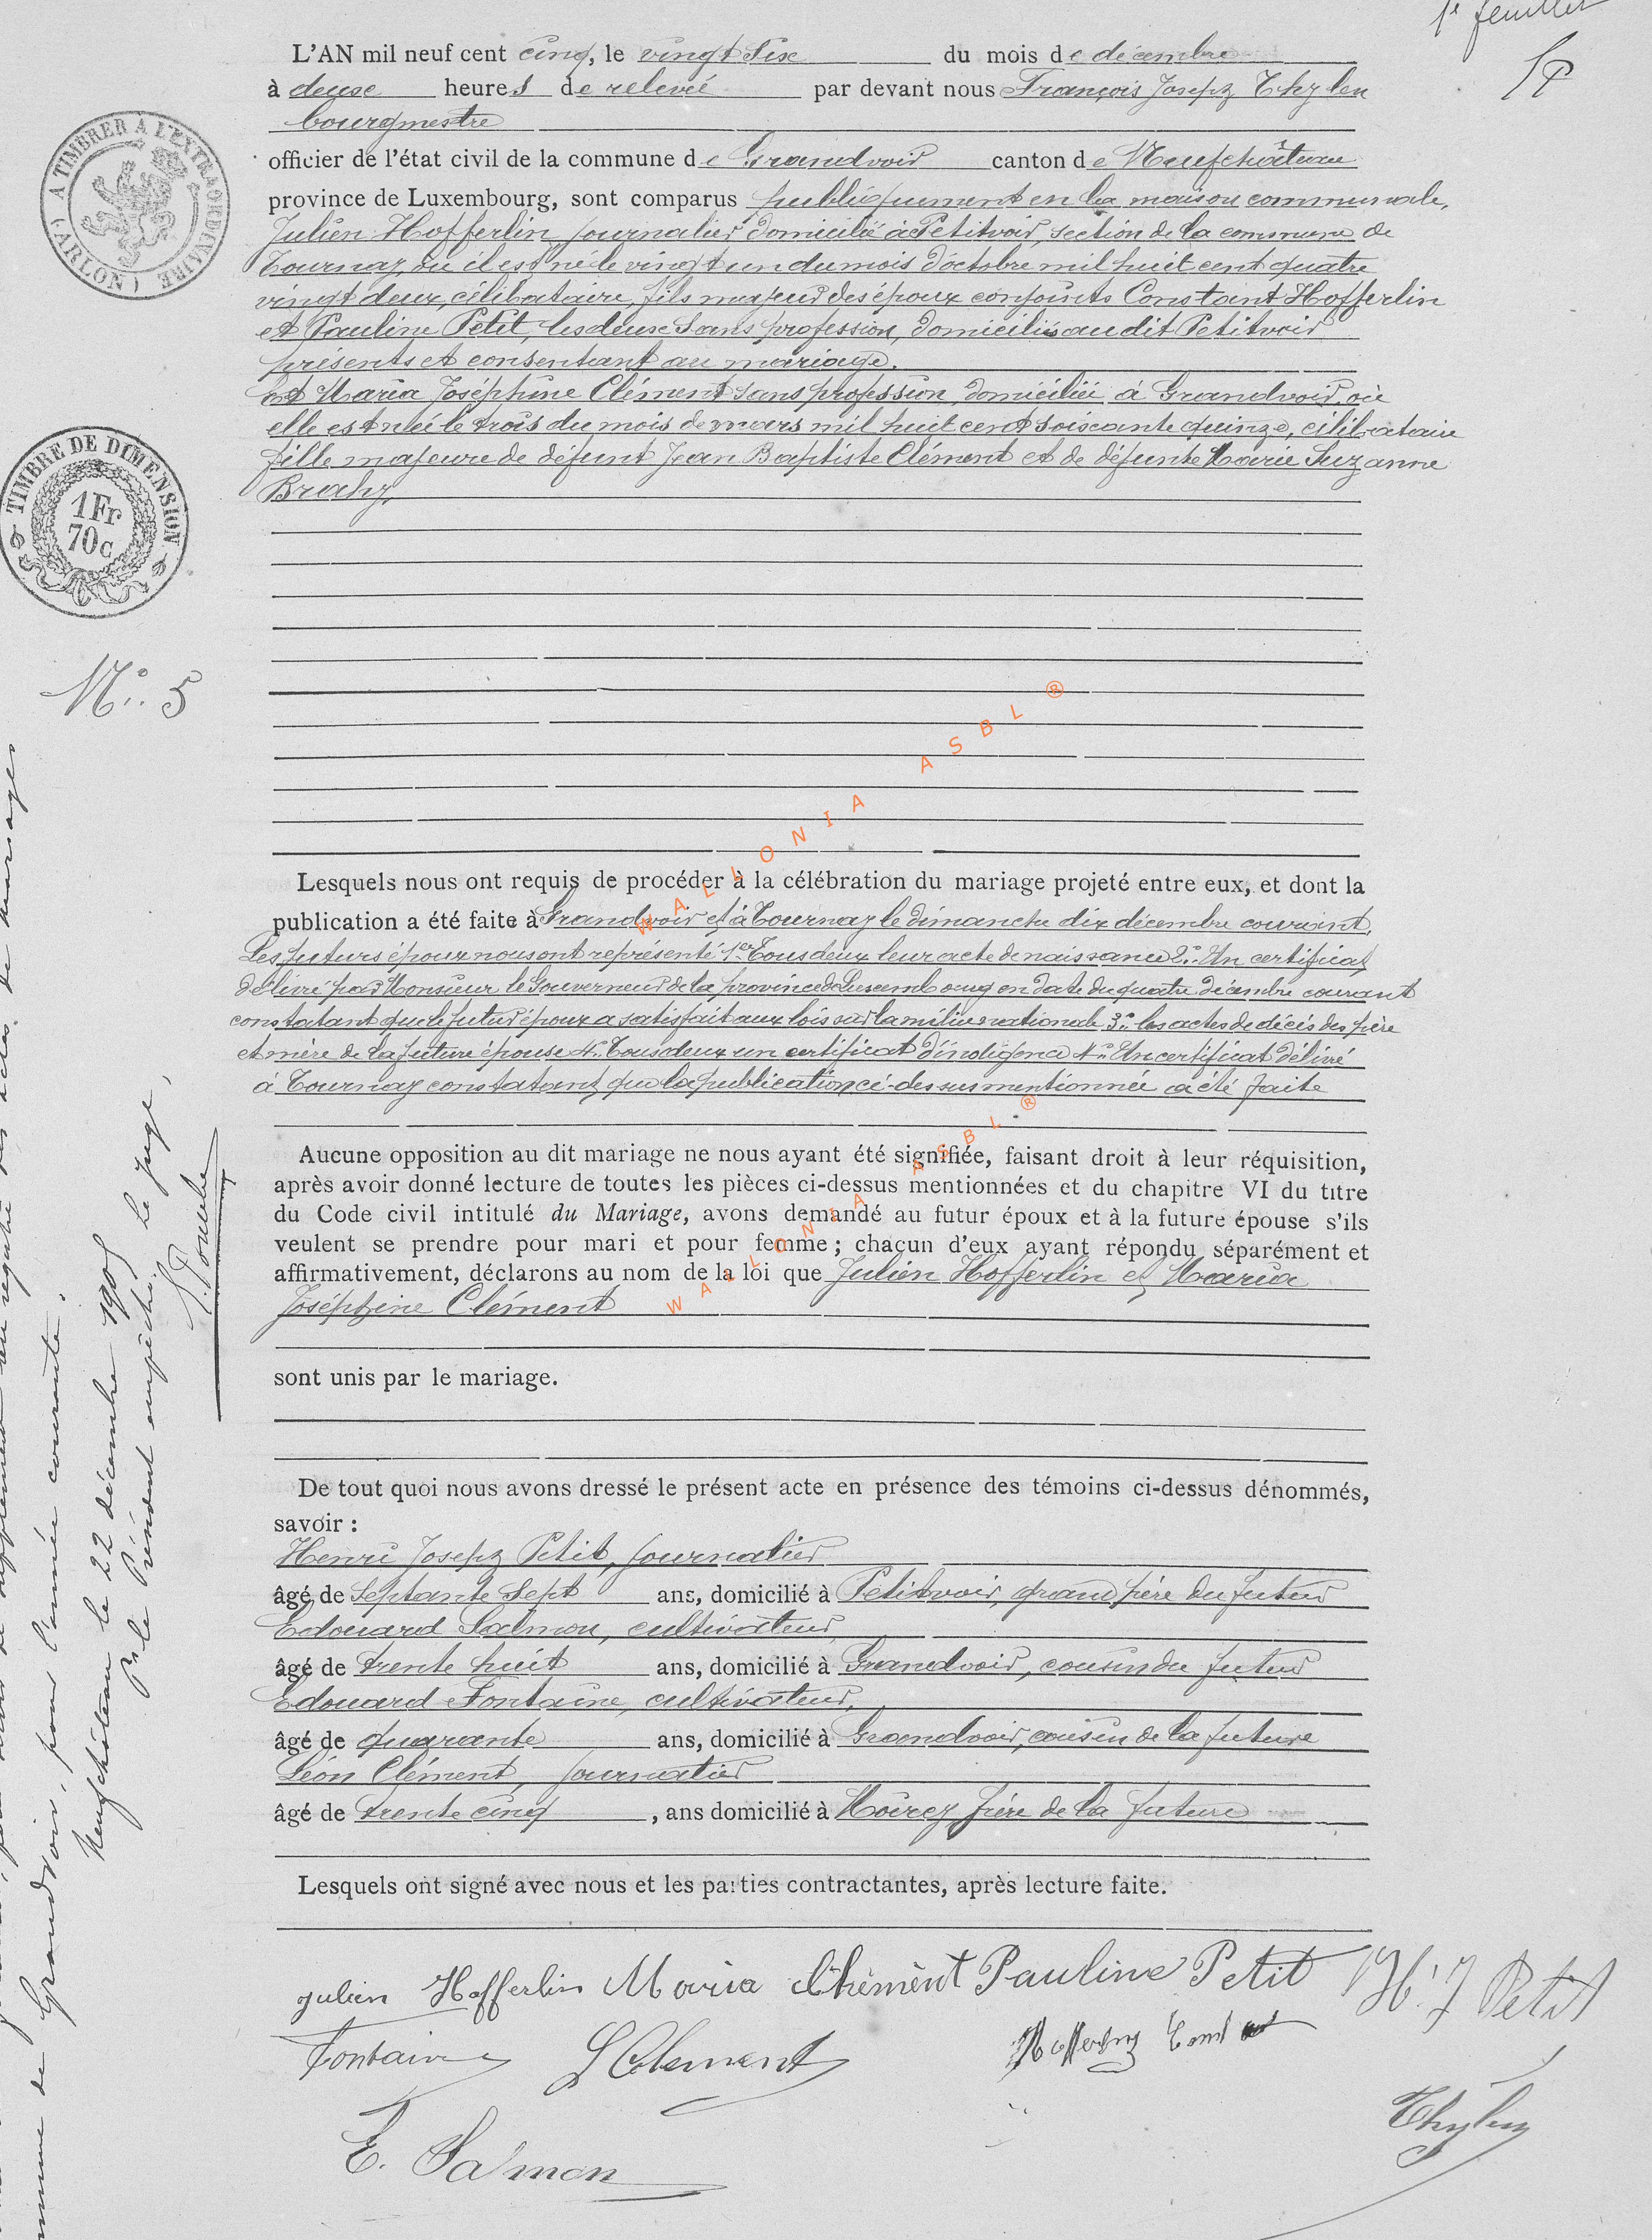 1e feuillet
SP
L'AN mil neuf cent cinq, le vingt six du mois de décembre
à deuxe heures de relevée par devant nous François Joseph Thylen
bourgmestre
officier de l'état civil de la commune de Grandvoir canton de Neufchâteau
province de Luxembourg, sont comparus publiquement en la maison communale,
Julien Hofferlin journalier domicilié à Petitvoir, section de la commune de
Tournay, où il est né le vingt un du mois d'octobre mil huit cent quatre
vingt deux, célibataire, fils majeur des époux conjoints Constant Hofferlin
et Pauline Petit, les deux sans profession, domiciliés audit Petitvoir
présents et consentant au mariage.
Et Maria Joséphine Clément sans profession, domiciliée à Grandvoir, où
elle est née le trois du mois de mars mil huit cent soixante quinze, célibataire
fille majeure de défunt Jean Baptiste Clément et de défunte Marie Suzanne
Brahy.
A TIMBRER A L'EXTRAORDINAIRE
(ARLON)
TIMBRE DE DIMENSION
1Fr
70c
No. 5
Lesquels nous ont requis de procéder à la célébration du mariage projeté entre eux, et dont la
publication a été faite à Grandvoir et à Tournay le dimanche dix décembre courant.
Les futurs époux nous ont représenté 1er Tous deux leur acte de naissance 2o. Un certificat
délivré par Monsieur le Gouverneur de la province de Luxembourg en date du quatre décembre courant
constatant que le futur époux a satisfait aux lois sur la milice nationale 3o. les actes de décès des père
et mère de la future épouse 4o. Tous deux un certificat d'indigence 4o. Un certificat délivré
à Tournay constatant que la publication ci-dessus mentionnée a été faite
Aucune opposition au dit mariage ne nous ayant été signifiée, faisant droit à leur réquisition,
après avoir donné lecture de toutes les pièces ci-dessus mentionnées et du chapitre VI du titre
du Code civil intitulé du Mariage, avons demandé au futur époux et à la future épouse s'ils
veulent se prendre pour mari et pour femme ; chacun d'eux ayant répondu séparément et
affirmativement, déclarons au nom de la loi que Julien Hofferlin et Maria
Joséphine Clément
sont unis par le mariage.
De tout quoi nous avons dressé le présent acte en présence des témoins ci-dessus dénommés,
savoir :
Henri Joseph Petit, journalier
âgé de Septante Sept ans, domicilié à Petitvoir, grand père du futur
Edouard Salmon, cultivateur
âgé de trente huit ans, domicilié à Grandvoir, cousin du futur
Edouard Fontaine, cultivateur,
âgé de quarante ans, domicilié à Grandvoir, cousin de la future
Léon Clément, journalier
âgé de trente cinq , ans domicilié à Moircy frère de la future
Lesquels ont signé avec nous et les parties contractantes, après lecture faite.
julien Hofferlin Maria Chément Pauline Petit H. J Petit
Fontaine L Clement
E. Salmon
Thylen
de Grandvoir, pour l'année courante.
Neufchâteau le 22 décembre 1905
Pr le Président empêché, Le Juge,
WALLONIA ASBL ®
WALLONIA ASBL ®